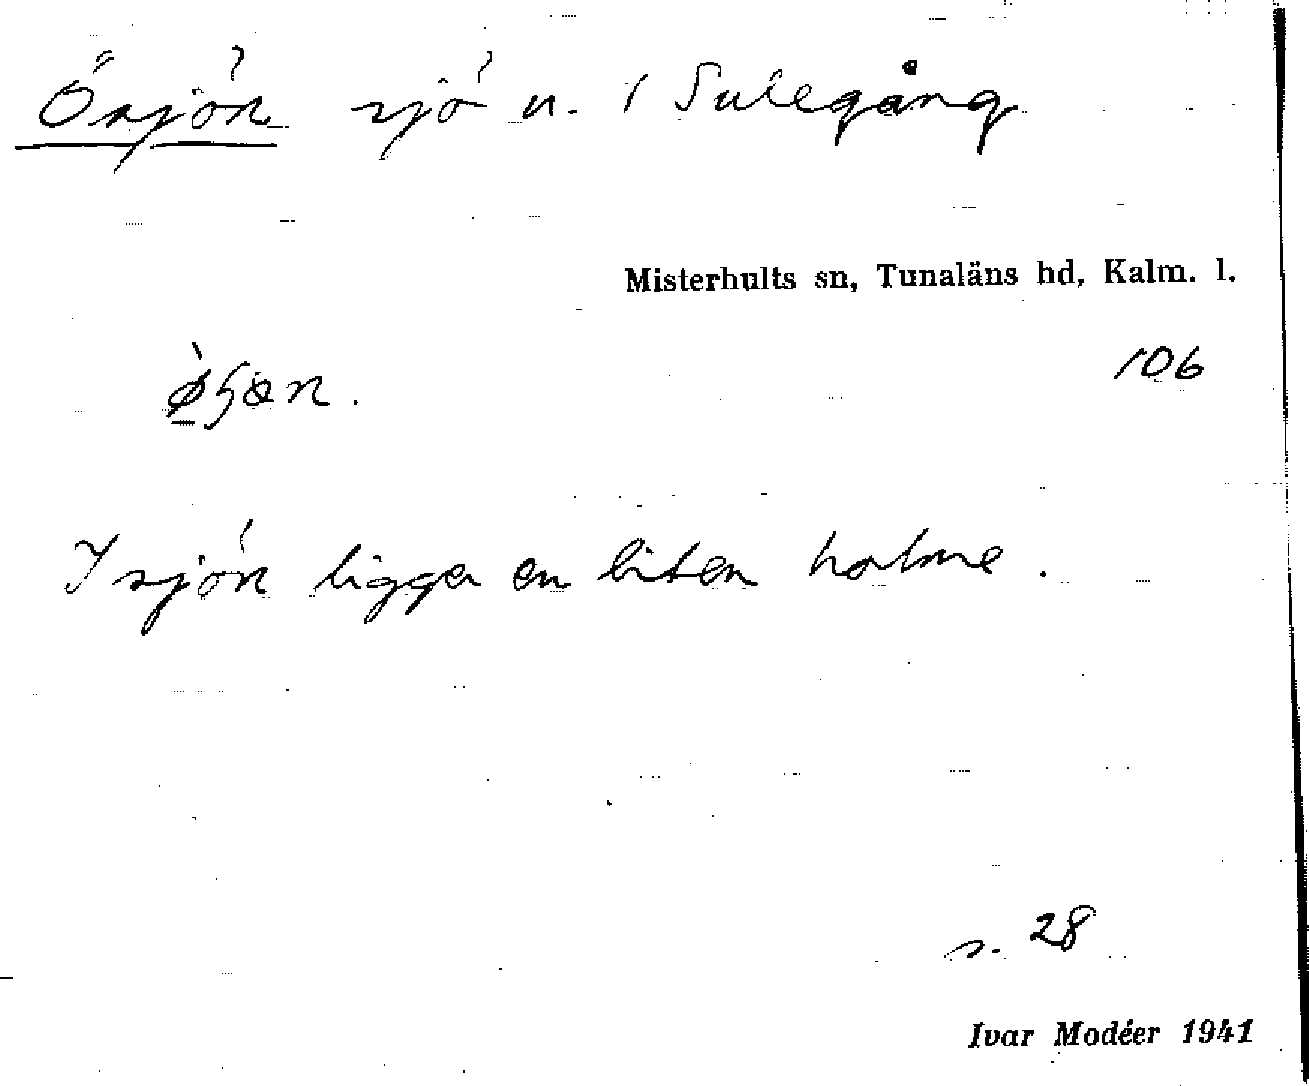 Ösjön sjö n. i Sulegång
Misterhults sn, Tunaläns hd, Kalm. l.
106
I sjön ligger en liten holme.
s. 28
Ivar Modéer 1941